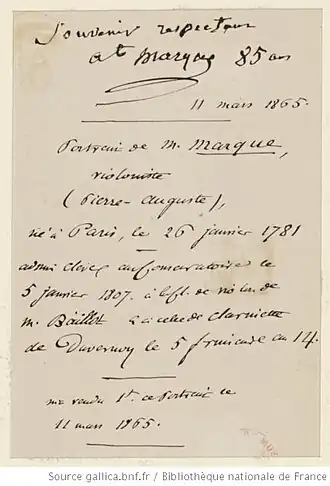 Souvenir respectueux
A te Marque 85 ans
11 mars 1865.
Portrait de M. Marque,
violoniste
(Pierre-Auguste),
né à Paris, le 26 janvier 1781
admis élève au Conservatoire le
5 janvier 1807. à la cl. de violon de
M. Baillot & à celle de clarinette
de Duvernoy le 5 frimaire an 14.
ma vendu ce Portrait le
11 mars 1865.
Source gallica.bnf.fr / Bibliothèque nationale de France